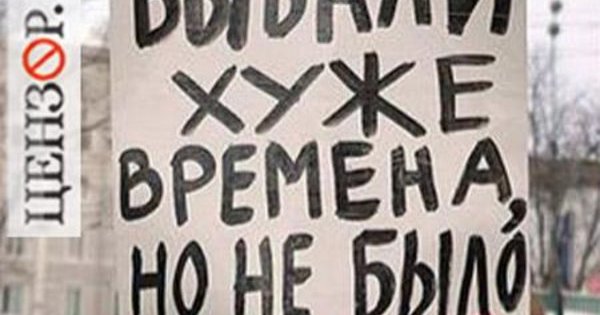 ЦЕНЗОР.
БЫВАЛИ
ХУЖЕ
ВРЕМЕНА,
НО НЕ БЫЛО